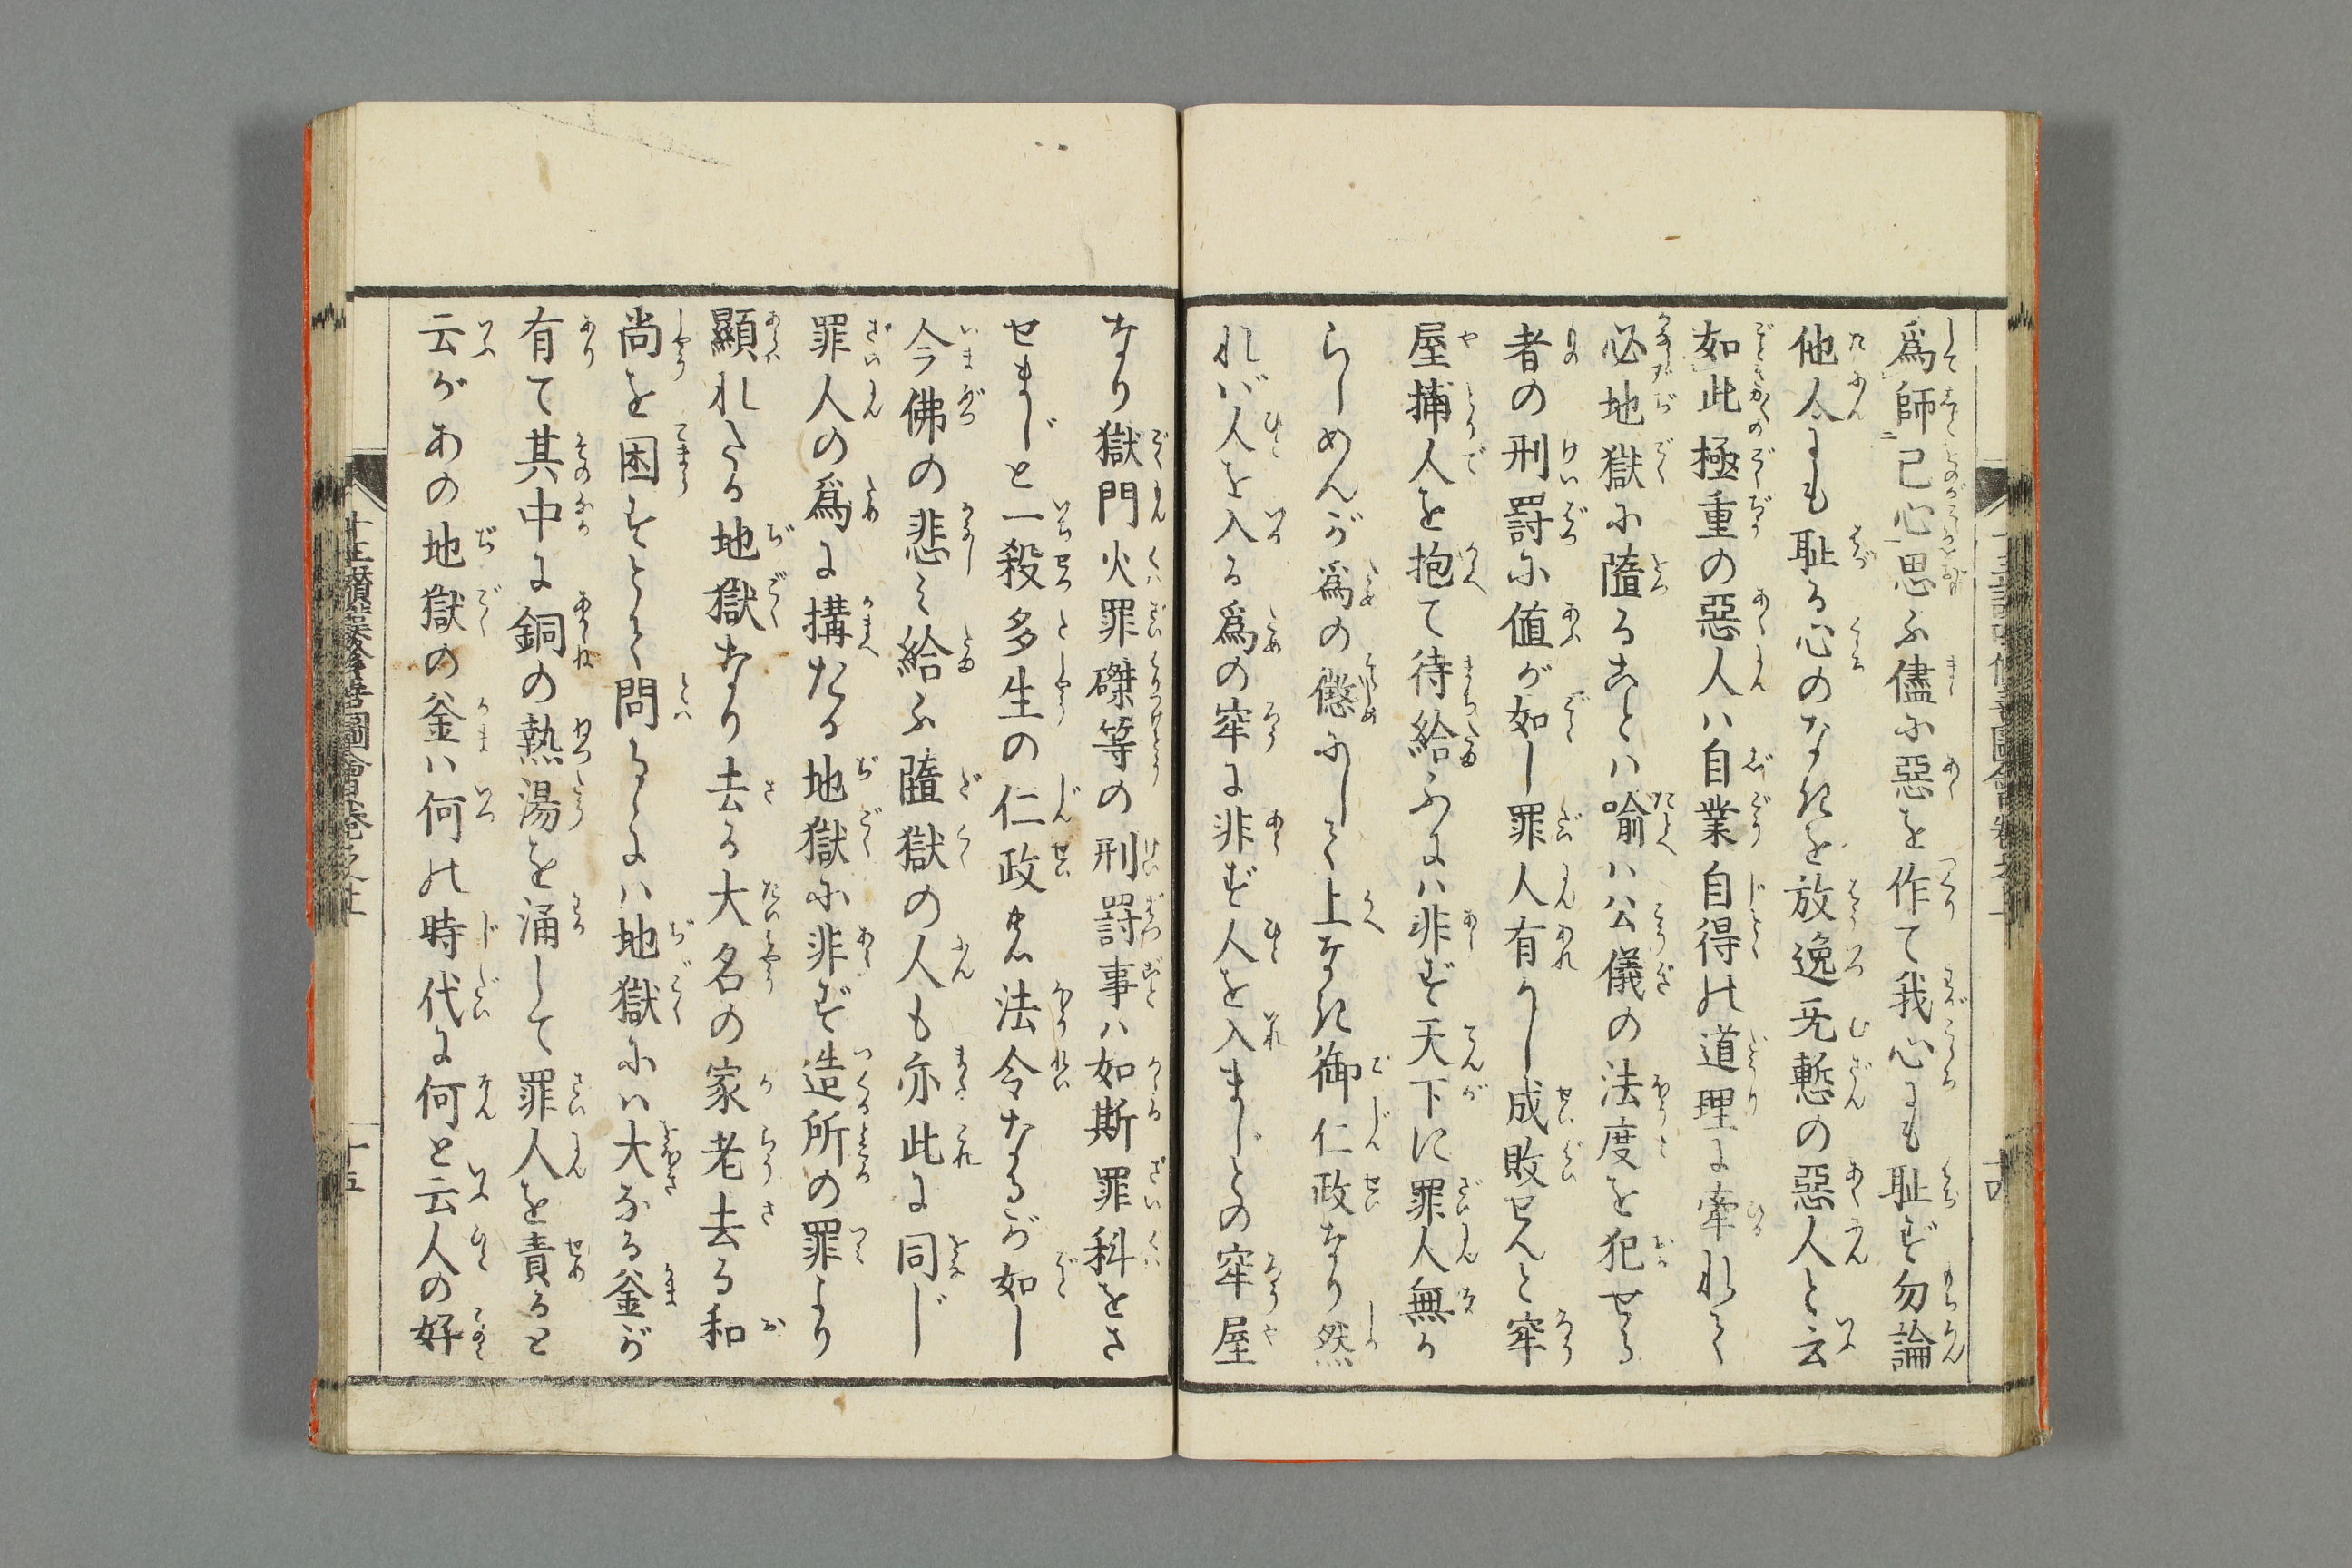 爲師己心思ふ儘に惡を作て我心にも耻ず勿論
他人にも耻る心のなきを放逸无慙の惡人と云
如此極重の惡人ハ自業自得の道理に牽れて
必地獄に墮ることハ喩ハ公儀の法度を犯せる
者の刑罸に値が如し罪人有かし成敗せんと牢
屋捕人を抱て待給ふにハ非ず天下に罪人無か
らしめんが爲の懲にして上なき御仁政なり然
れバ人を入る爲の牢に非ず人を入まじとの牢屋
なり獄門火罪磔等の刑罸事ハ如斯罪科をさ
せまじと一殺多生の仁政の法令なるが如し
今佛の悲み給ふ墮獄の人も亦此に同じ
罪人の爲に搆たる地獄に非ず造所の罪より
顯れたる地獄なり去る大名の家老去る和
尚を困すとて問るゝにハ地獄にハ大なる釜が
有て其中に銅の熱湯を涌して罪人を責ると
云があの地獄の釜ハ何の時代に何と云人の好
十五